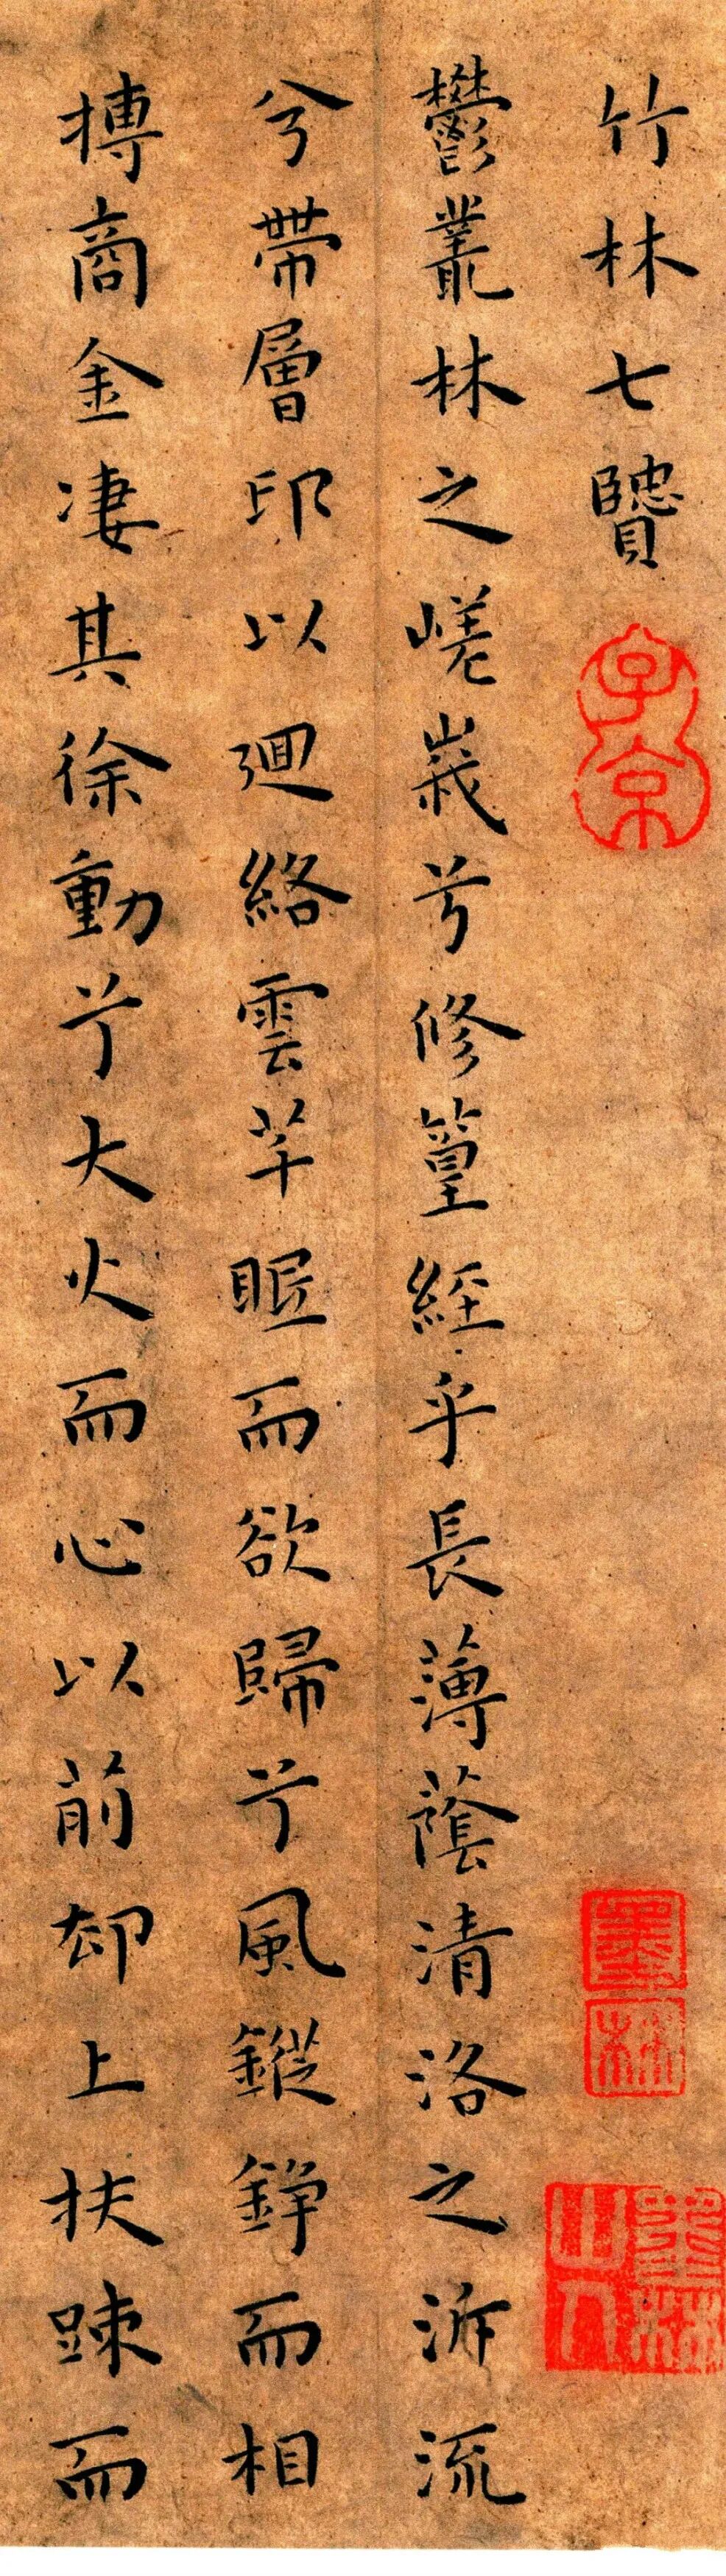 竹林七贒
鬱叢林之嵯峩兮修篁經乎長薄蔭清洛之泝流
兮帶層印以迴絡雲芊眠而欲歸兮風鏦錚而相
摶商金凄其徐動兮大火而心以前却上扶踈而
子京
墨林
墨林山人